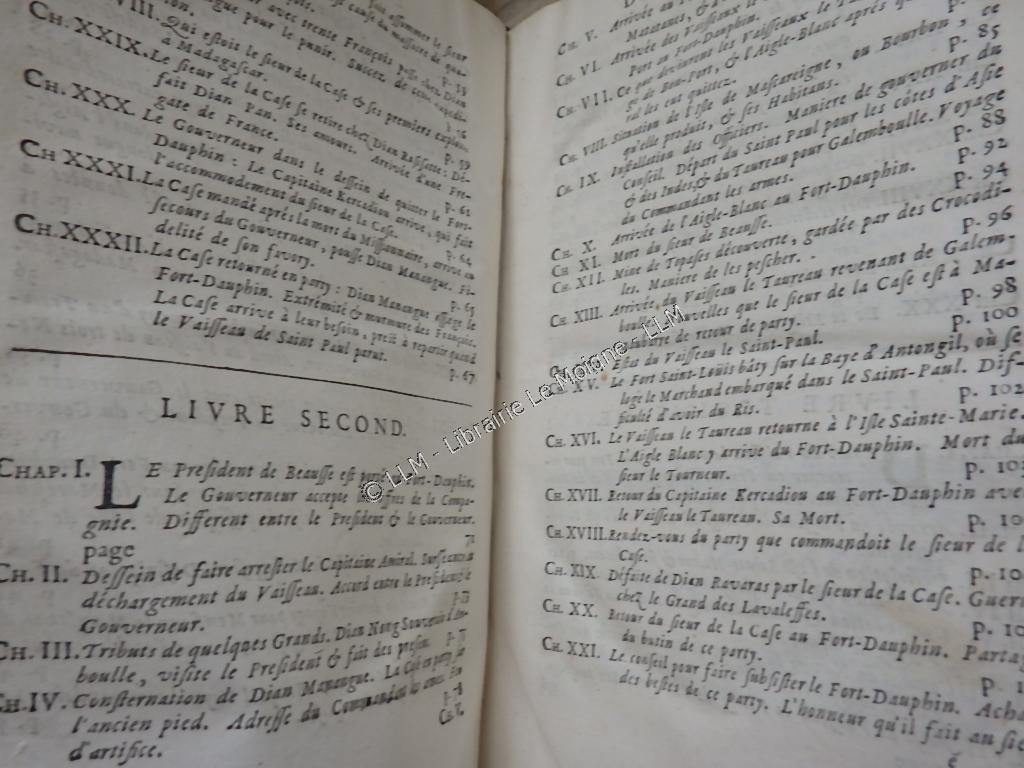 VIII.
sieur de la Case & ses premiers exploits
à Madagascar. p. 59
CH. XXIX. Le sieur de la Case se retire chez Dian Rassissate: Dé-
fait Dian Pan. Ses amours. Arrivée d'une Fre-
gate de France. p. 61
CH. XXX. Le Gouverneur dans le dessein de quitter le Fort-
Dauphin: Le Capitaine Kercadiou arrive, qui fait
l'accommodement du sieur de la Case. p. 64
CH XXXI. La Case mandé après la mort du Missionaire, arrive au
secours du Gouverneur, pousse Dian Manangue. Fi-
delité de son favory. p. 65
CH. XXXII. La Case retourné en party: Dian Manangue assiege le
Fort-Dauphin. Extrémité & murmure des François.
La Case arrive à leur besoin, prest à repartir quand
le Vaisseau de Saint Paul parut. p. 67
LIVRE SECOND.
CHAP. I. LE President de Beausse est au Fort-Dauphin.
Le Gouverneur accepte les offres de la Compa-
gnie. Different entre le President & le Gouverneur.
page
CH. II. Dessein de faire arrester le Capitaine Amiral.
déchargement du Vaisseau. Accord entre le President & le
Gouverneur.
CH. III. Tributs de quelques Grands. Dian Nong Souverain d'Am-
boulle, visite le President & fait des presens.
CH. IV. Consternation de Dian Manangue. La Case en party, sur
l'ancien pied. Adresse du Commandant
d'artifice.
CH. V.
CH. V. Arrivée au
Matanes, &
CH. VI. Arrivée des Vaisseaux
Port au Fort-Dauphin.
CH. VII. Ce que devinrent les Vaisseaux le Taureau
ge de Bon-Port, & l'Aigle-Blanc après
ral les eut quittez. p. 85
CH. VIII. Situation de l'Isle de Mascareigne, ou Bourbon, ce
qu'elle produit, & ses Habitans.
CH. IX. Installation des Officiers. Maniere de gouverner du
Conseil. Départ du Saint Paul pour les côtes d'Asie
& des Indes, & du Taureau pour Galemboulle. Voyage
du Commandant les armes. p. 88
CH. X. Arrivée de l'Aigle-Blanc au Fort-Dauphin. p. 92
CH XI. Mort du sieur de Beausse. p. 94
CH. XII. Mine de Topases découverte, gardée par des Crocodi-
les. Maniere de les pescher. p. 96
CH. XIII. Arrivée du Vaisseau le Taureau revenant de Galem-
boulle. Nouvelles que le sieur de la Case est à Ma-
de retour de party. p. 98
Estat du Vaisseau le Saint-Paul. p. 100
XV. Le Fort Saint-Loüis bâty sur la Baye d'Antongil, où se
loge le Marchand embarqué dans le Saint-Paul. Dif-
ficulté d'avoir du Ris. p. 102
CH. XVI. Le Vaisseau le Taureau retourne à l'Isle Sainte-Marie.
L'Aigle Blanc y arrive du Fort-Dauphin. Mort du
sieur le Tourneur.
CH. XVII. Retour du Capitaine Kercadiou au Fort-Dauphin avec
le Vaisseau le Taureau. Sa Mort.
CH. XVIII. Rendez-vous du party que commandoit le sieur de l
Case.
CH. XIX. Défaite de Dian Ravaras par le sieur de la Case. Guerre
chez le Grand des Lavaleffes.
CH. XX. Retour du sieur de la Case au Fort-Dauphin. Partage
du butin de ce party.
CH. XXI. Le conseil pour faire subsister le Fort-Dauphin. Acha
des bestes de ce party. L'honneur qu'il fait au sie
© LLM - Librairie Le Moigne - LLM